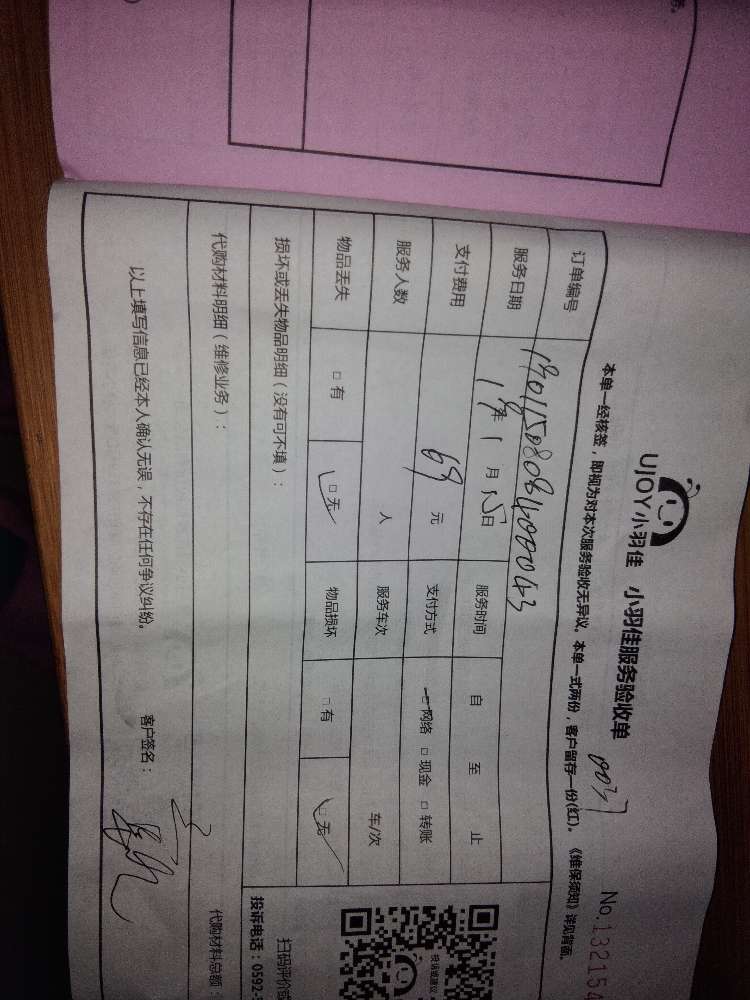 UJOY小羽佳 小羽佳服务验收单
0037
No.13215
本单一经核签，即视为对本次服务验收无异议。本单一式两份，客户留存一份(红)。《维保须知》详见背面
订单编号
服务日期 年 1 月 15日 服务时间 自 至 止
支付费用 69 元 支付方式 □网络 □现金 □转账
服务人数 人 服务车次 车/次
物品丢失 □有 □无 物品损坏 □有 □无
损坏或丢失物品明细（没有可不填）：
代购材料明细（维修业务）： 代购材料总额：
以上填写信息已经本人确认无误，不存在任何争议纠纷。 客户签名：
投诉或建议
扫码评价或
投诉电话：0592-5